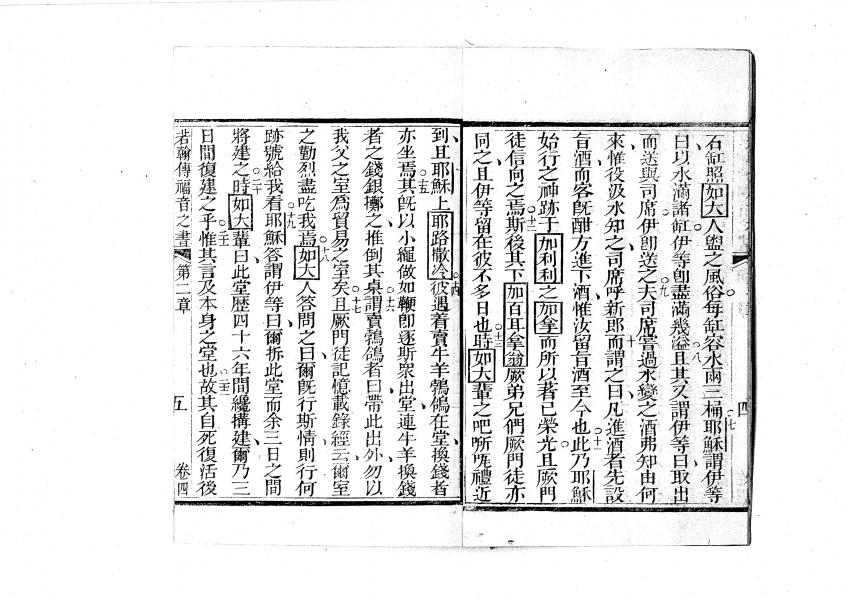 石缸照如大人盥之風俗每缸容水兩三桶耶穌謂伊等
曰以水滿諸缸伊等卽盡滿幾溢且其又謂伊等曰取出
而送與司席伊卽送之夫司席嘗過水變之酒弗知由何
來惟役汲水知之司席呼新郎而謂之曰凡進酒者先設
旨酒而客旣酣方進下酒惟汝留旨酒至今也此乃耶穌
始行之神跡于加利利之加拿而所以著已榮光且厥門
徒信向之焉斯後其下加百耳拿翁厥弟兄們厥門徒亦
同之且伊等留在彼不多日也時如大輩之吧所咓禮近
到且耶穌上耶路撒冷彼遇着賣牛羊鵓鴿在堂換錢者
亦坐焉其旣以小繩做如鞭卽逐斯衆出堂連牛羊換錢
者之錢銀擲之推倒其桌謂賣鵓鴿者曰帶此出外勿以
我父之室爲貿易之室矣且厥門徒記憶載錄經云爾室
之勤烈盡吃我焉如大人答問之曰爾旣行斯情則行何
跡號給我看耶穌答謂伊等曰爾拆此堂而余三日之間
將建之時如大輩曰此堂歷四十六年間纔搆建爾乃三
日間復建之乎惟其言及本身之堂也故其自死復活後
若翰傳福音之書 第二章 五 卷四